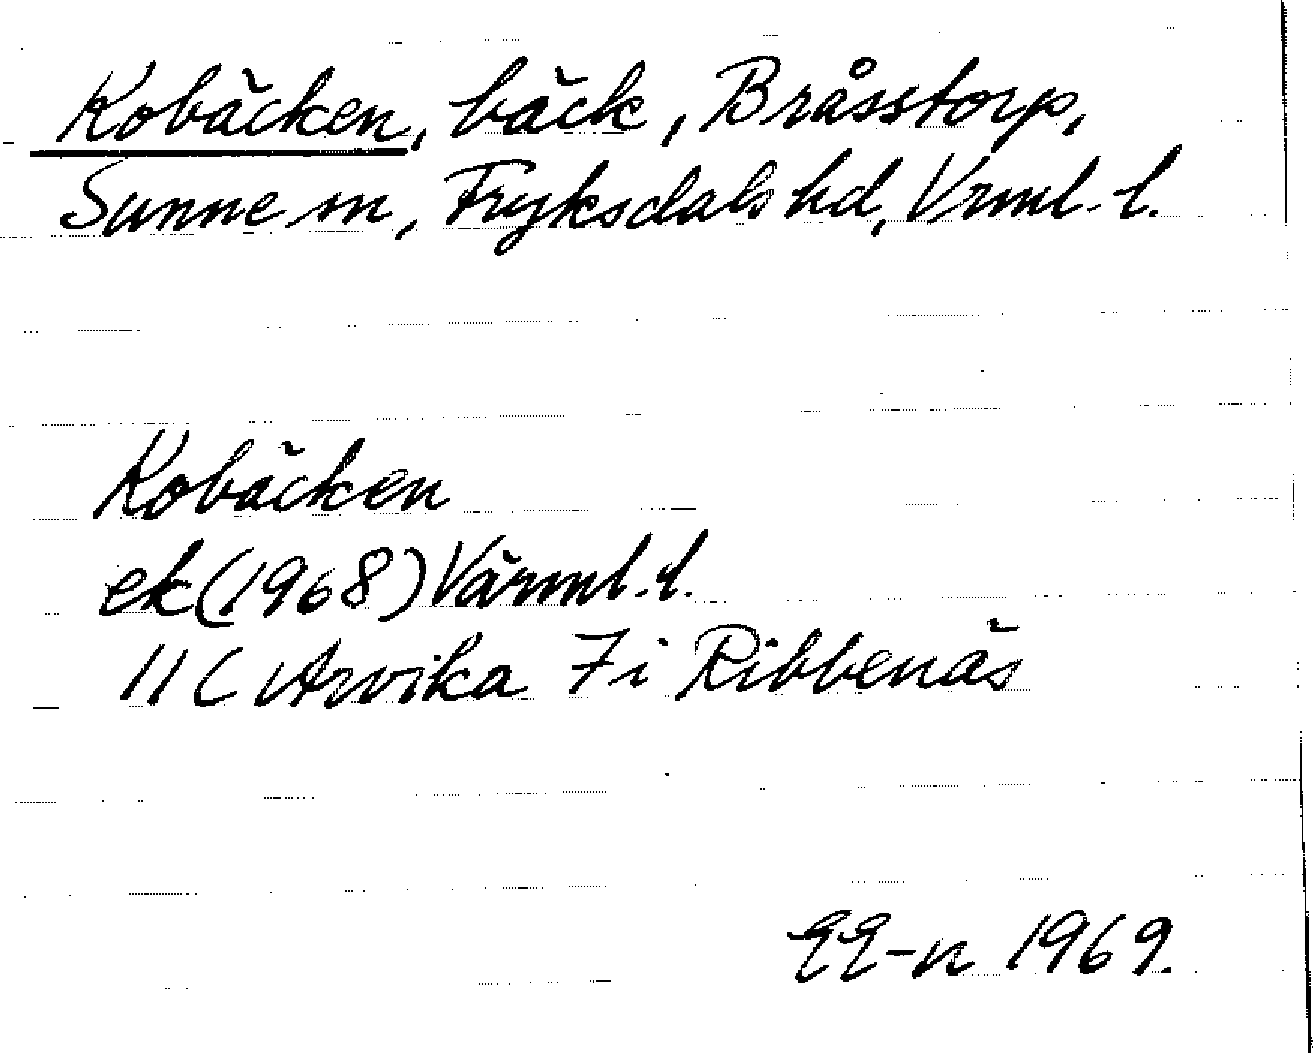 Kobäcken, bäck, Bråsstorp,
Sunne sn, Fryksdals hd, Vrml. l.
Kobäcken
ek (1968) Värml. l.
11 C Arvika 7 i Ribbenäs
EE-n 1969.